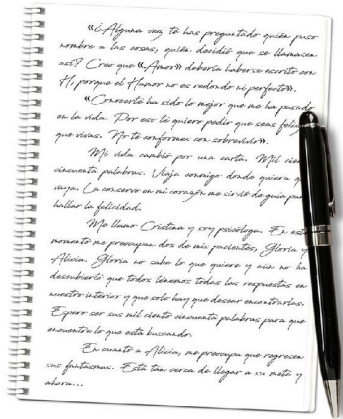 «¿Alguna vez te has preguntado quién puso
nombre a las cosas, quién decidió que se llamasen
así? Creo que «Amor» debería haberse escrito con
H, porque el Humor no es redondo ni perfecto».
«Conocerte ha sido lo mejor que me ha pasado
en la vida. Por eso te quiero pedir que seas feliz,
que vivas. No te conformes con sobrevivir».
Mi vida cambió por una carta. Mil cien
cincuenta palabras. Viaja conmigo donde quiera q
vaya. La conservo en mi corazón, me sirvió de guía par
hallar la felicidad.
Me llamo Cristina y soy psicóloga. En este
momento me preocupan dos de mis pacientes, Gloria y
Alicia. Gloria no sabe lo que quiere y aún no ha
descubierto que todos tenemos todas las respuestas en
nuestro interior y que solo hay que desear encontrarlas.
Espero ser sus mil ciento cincuenta palabras para que
encuentre lo que está buscando.
En cuanto a Alicia, me preocupa que regresen
sus fantasmas. Está tan cerca de llegar a su meta y
ahora...